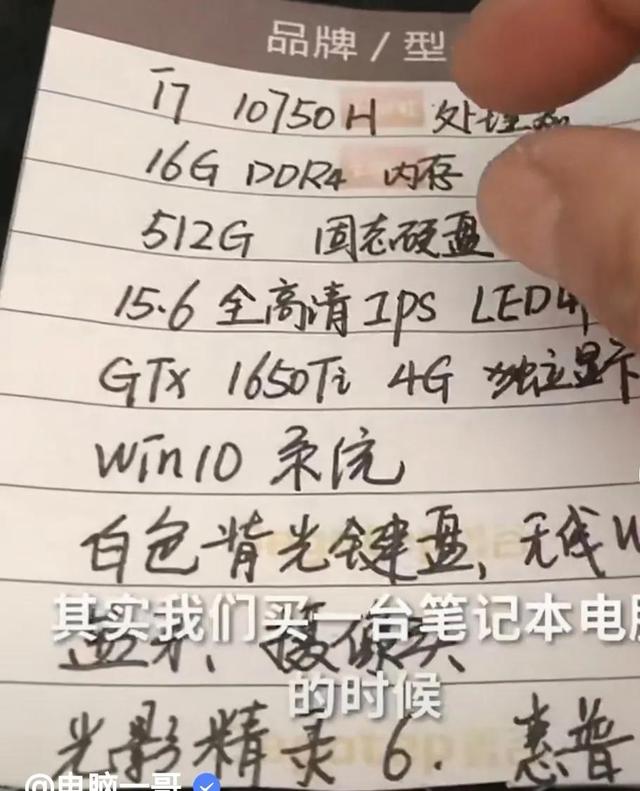 品牌/型
i7 10750H 处理器
16G DDR4 内存
512G 固态硬盘
15.6 全高清 IPS LED
GTX 1650Ti 4G 独立显卡
Win10 系统
白色背光键盘、无线W
其实我们买一台笔记本电脑
蓝牙、摄像头
的时候
光影精灵6. 惠普
@电脑一哥